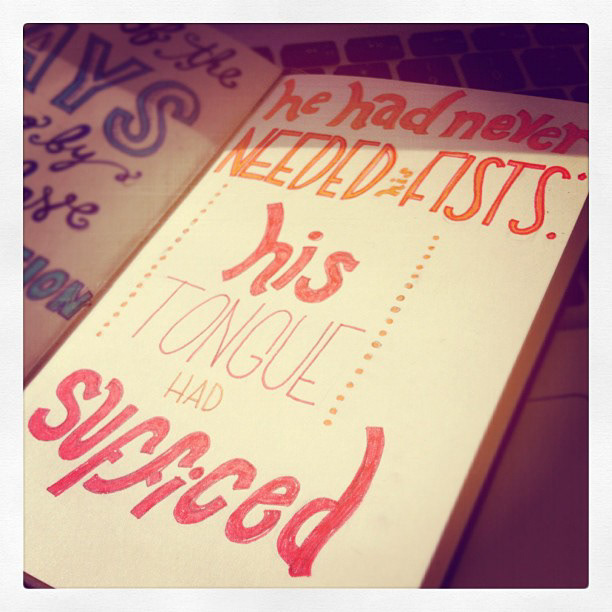 of the
AYS
by
ION
he had never
NEEDED his FISTS:
his
TONGUE
HAD
sufficed